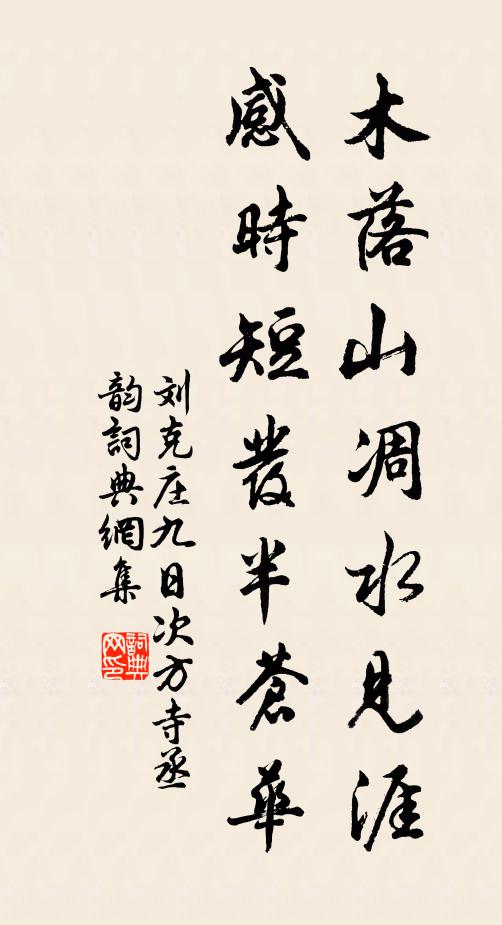 木落山凋水見涯
感時短發半蒼華
刘克庄九日次方寺丞
韵詞典網集
詞典
网印